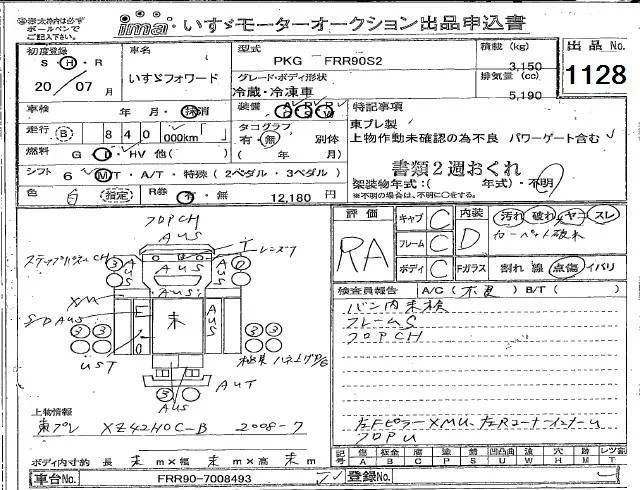 ※赤太枠内は必ず
ボールペンで
ご記入下さい。
ima いすゞモーターオークション出品申込書
初度登録
S・H・R
20／07月
車名
いすゞフォワード
型式
PKG FRR90S2
グレード・ボディ形状
冷蔵・冷凍車
積載 (kg)
3,150
排気量 (cc)
5,190
出品 No.
1128
車検 年 月・抹消
走行 B 840 000km
燃料 G D HV 他( )
シフト 6 MT・A/T・特殊 (2ペダル・3ペダル)
色 白 指定 R券 有・無 12,180 円
装備
タコグラフ
有・無 別体
( 年 月)
特記事項
東プレ製
上物作動未確認の為不良 パワーゲート含む
書類2週おくれ
架装物年式:( 年式)・不明
※不明の場合は、不明に○をする。
評価
RA
キャブ C
フレーム C
ボディ C
内装 D
汚れ 破れ ヤニ スレ
カーペット破れ
Fガラス 割れ 線 点傷 イバリ
検査員報告 A/C(不良) B/T( )
バン内未検
フレームS
フロPCH
左FピラーXMU、左RコーナーインナーU
フロPU
フロPCH
AUS
AUS
AUS
AUS
AUS
レンズワ
ステップパネルCH
XM
未
UST
AUS
AUT
AUS
上物情報
東プレ XZ42H0C-B 2008-7
ボディ内寸約 長 未 m×幅 未 m×高 未 m
記号 傷 板金 腐 塗 錆 凹 凸曲 穴 跡 レツ割
A B C P S U W H M T
車台No. FRR90-7008493 登録No.